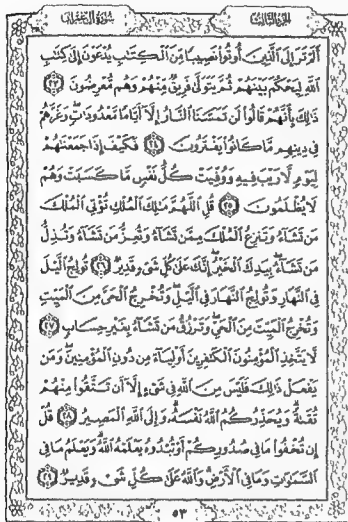 سُورَةُ آلِ عِمْرَانَ الجُزْءُ الثَّالِثُ
أَلَمْ تَرَ إِلَى ٱلَّذِينَ أُوتُوا۟ نَصِيبًا مِّنَ ٱلْكِتَٰبِ يُدْعَوْنَ إِلَىٰ كِتَٰبِ
ٱللَّهِ لِيَحْكُمَ بَيْنَهُمْ ثُمَّ يَتَوَلَّىٰ فَرِيقٌ مِّنْهُمْ وَهُم مُّعْرِضُونَ ٢٣
ذَٰلِكَ بِأَنَّهُمْ قَالُوا۟ لَن تَمَسَّنَا ٱلنَّارُ إِلَّآ أَيَّامًا مَّعْدُودَٰتٍ وَغَرَّهُمْ
فِى دِينِهِم مَّا كَانُوا۟ يَفْتَرُونَ ٢٤ فَكَيْفَ إِذَا جَمَعْنَٰهُمْ
لِيَوْمٍ لَّا رَيْبَ فِيهِ وَوُفِّيَتْ كُلُّ نَفْسٍ مَّا كَسَبَتْ وَهُمْ
لَا يُظْلَمُونَ ٢٥ قُلِ ٱللَّهُمَّ مَٰلِكَ ٱلْمُلْكِ تُؤْتِى ٱلْمُلْكَ
مَن تَشَآءُ وَتَنزِعُ ٱلْمُلْكَ مِمَّن تَشَآءُ وَتُعِزُّ مَن تَشَآءُ وَتُذِلُّ
مَن تَشَآءُ بِيَدِكَ ٱلْخَيْرُ إِنَّكَ عَلَىٰ كُلِّ شَىْءٍ قَدِيرٌ ٢٦ تُولِجُ ٱلَّيْلَ
فِى ٱلنَّهَارِ وَتُولِجُ ٱلنَّهَارَ فِى ٱلَّيْلِ وَتُخْرِجُ ٱلْحَىَّ مِنَ ٱلْمَيِّتِ
وَتُخْرِجُ ٱلْمَيِّتَ مِنَ ٱلْحَىِّ وَتَرْزُقُ مَن تَشَآءُ بِغَيْرِ حِسَابٍ ٢٧
لَّا يَتَّخِذِ ٱلْمُؤْمِنُونَ ٱلْكَٰفِرِينَ أَوْلِيَآءَ مِن دُونِ ٱلْمُؤْمِنِينَ وَمَن
يَفْعَلْ ذَٰلِكَ فَلَيْسَ مِنَ ٱللَّهِ فِى شَىْءٍ إِلَّآ أَن تَتَّقُوا۟ مِنْهُمْ
تُقَىٰةً وَيُحَذِّرُكُمُ ٱللَّهُ نَفْسَهُۥ وَإِلَى ٱللَّهِ ٱلْمَصِيرُ ٢٨ قُلْ
إِن تُخْفُوا۟ مَا فِى صُدُورِكُمْ أَوْ تُبْدُوهُ يَعْلَمْهُ ٱللَّهُ وَيَعْلَمُ مَا فِى
ٱلسَّمَٰوَٰتِ وَمَا فِى ٱلْأَرْضِ وَٱللَّهُ عَلَىٰ كُلِّ شَىْءٍ قَدِيرٌ ٢٩
٥٣